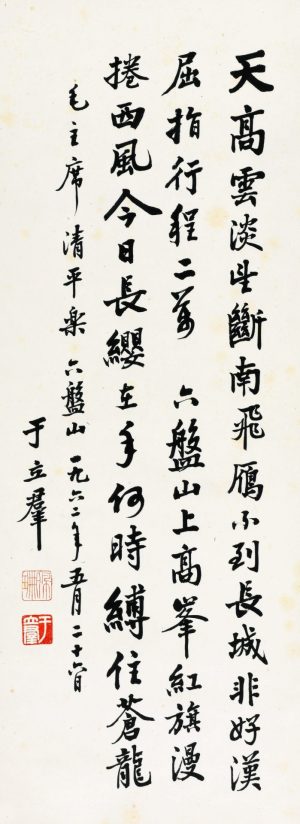 天高雲淡望斷南飛鴈不到長城非好漢
屈指行程二萬 六盤山上高峯紅旗漫
捲西風今日長纓在手何時縛住蒼龍
毛主席清平樂六盤山一九六二年五月二十六日
于立羣